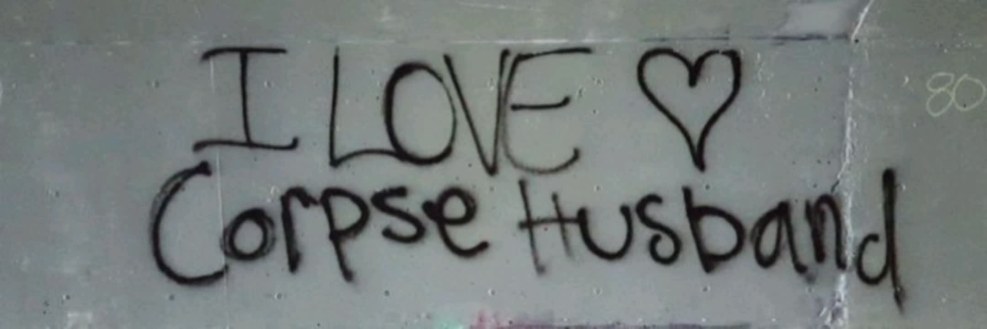 I LOVE ♡
Corpse Husband
80